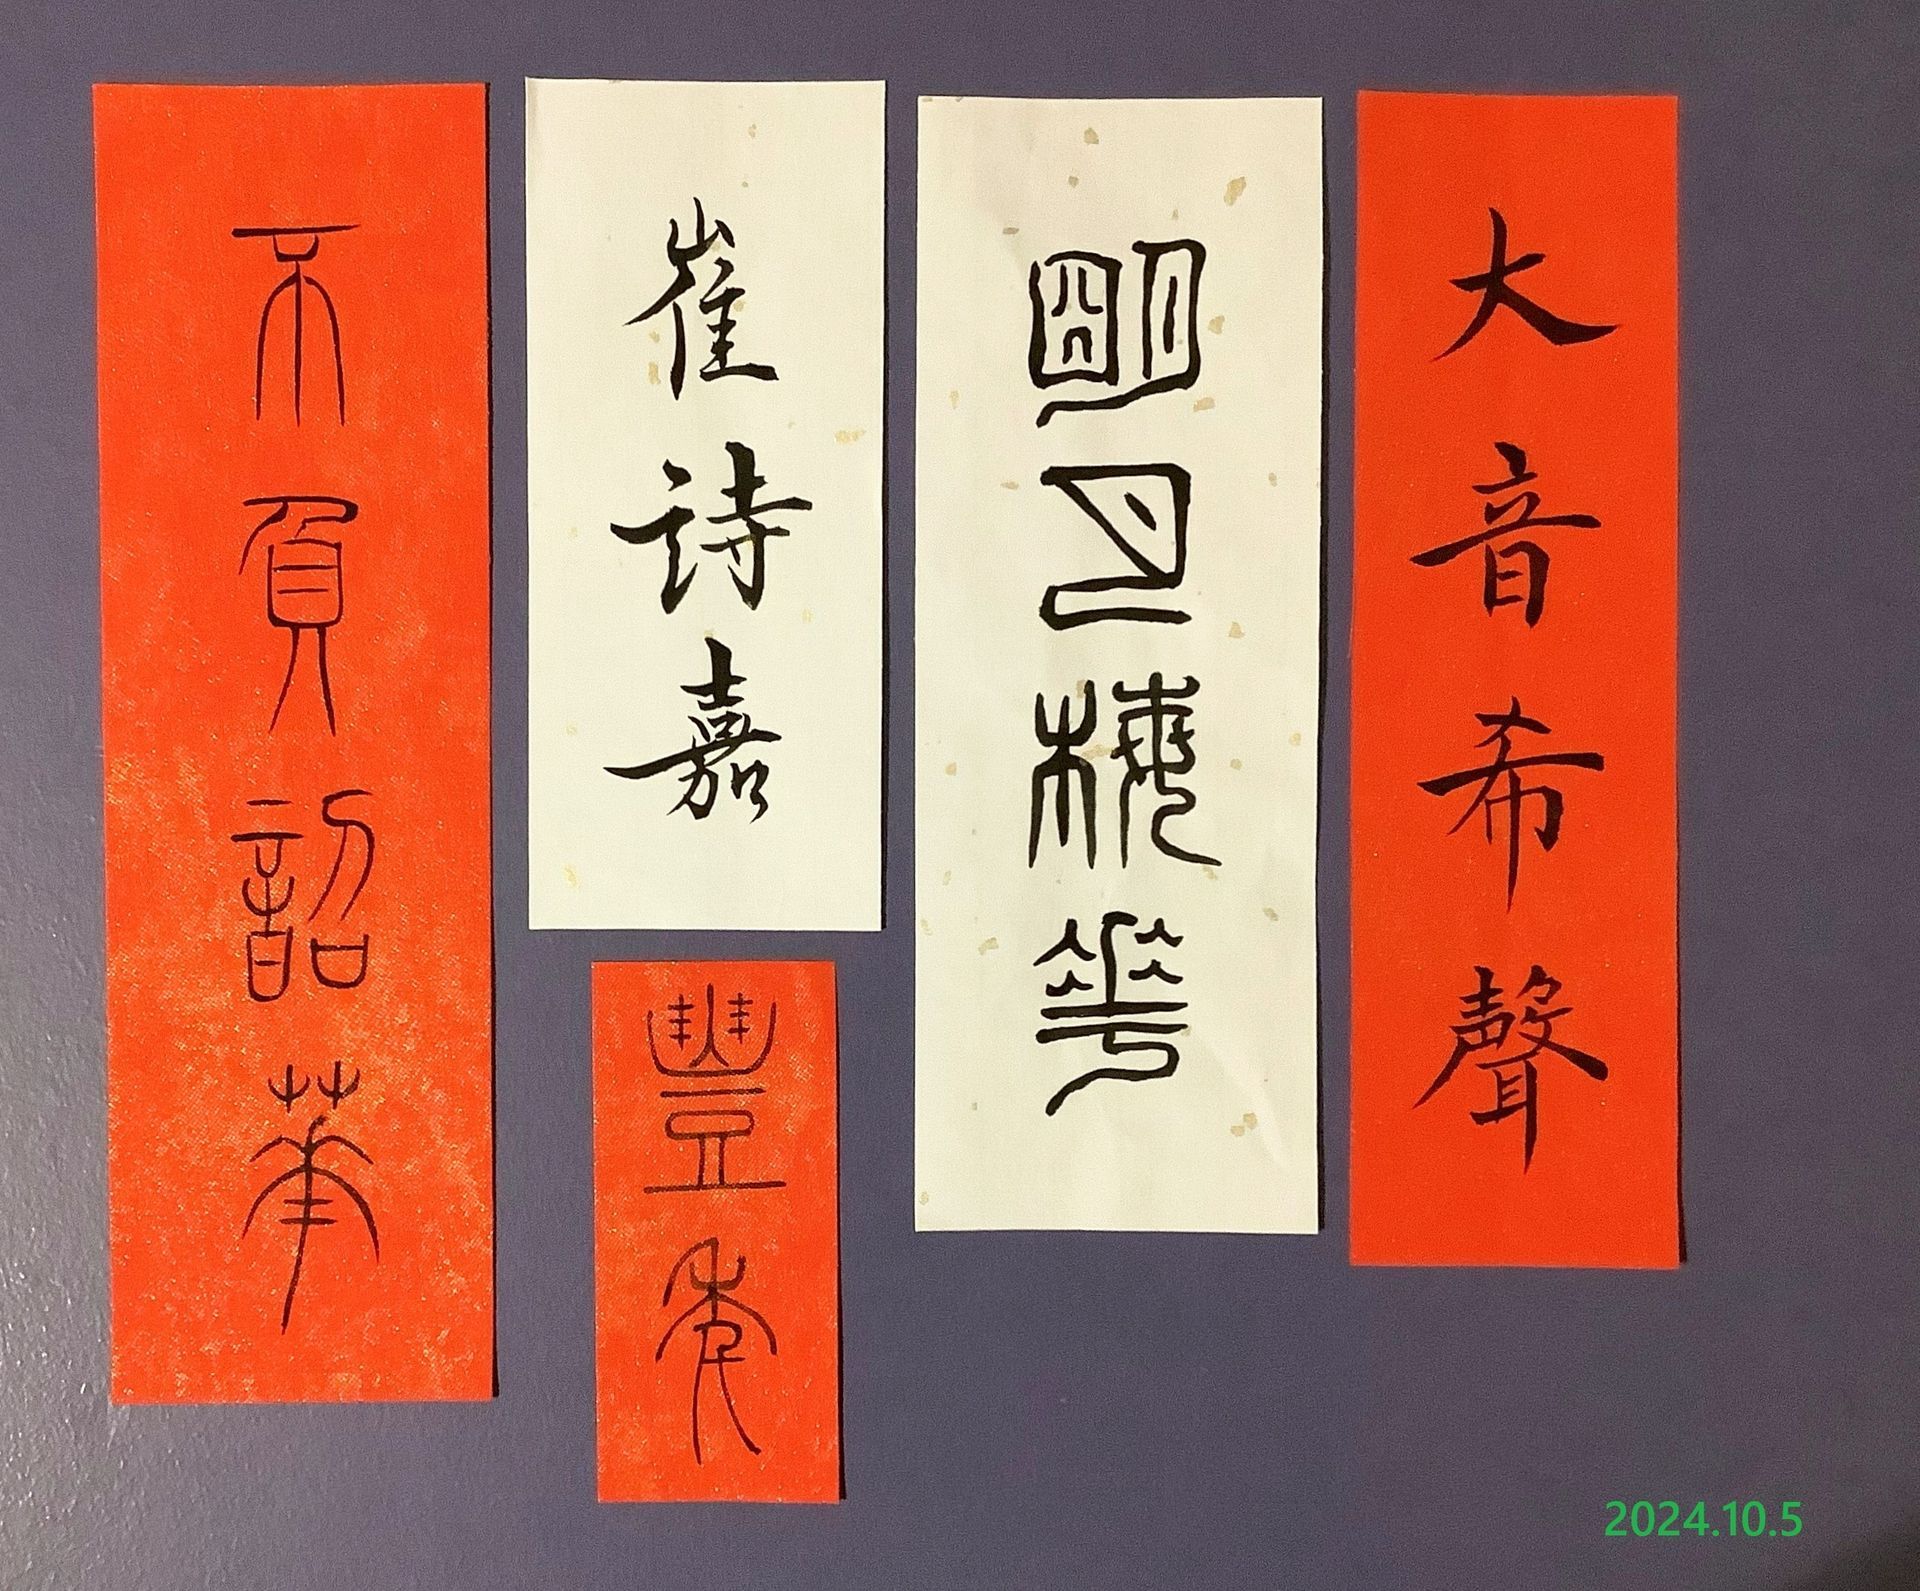 大音希聲
明月梅華
崔詩嘉
豐年
不負韶華
2024.10.5